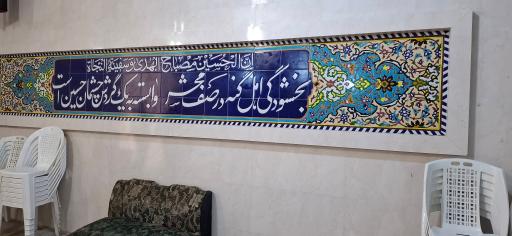 ان الحسین مصباح الهدی و سفینة النجاة
بخشودگی اهل گنه در صف محشر وابسته به یک گردش چشمان حسین است